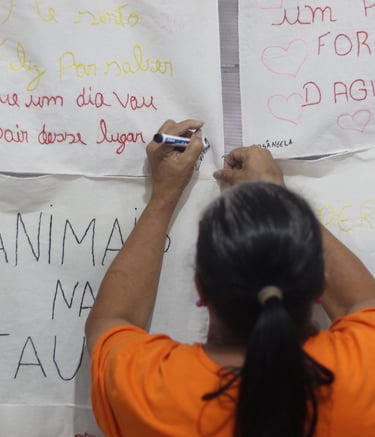 Me sinto
feliz Por saber
que um dia vou
sair desse lugar
um
FOR
D AGU
ROSÂNGELA
ANIMAIS
NA
TAU